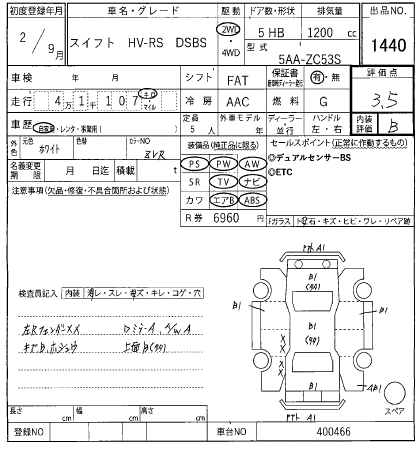 初度登録年月 車名・グレード 駆動 ドア数・形状 排気量 出品NO.
2 / 9月 スイフト HV-RS DSBS 2WD ・4WD 5 HB 1200 cc 1440
型式 5AA-ZC53S
車検 年 月 シフト FAT 保証書 有・無 評価点
走行 4万1千107 km マイル 冷房 AAC 燃料 G 3.5
車歴 自家用・レンタ・事業用( ) 定員 5人 外車モデル 年 ディーラー・並行 ハンドル 左・右 内装評価 B
外色 元色 ホワイト 色替 カラーNO ZVR 装備品(純正品に限る) セールスポイント(正常に作動するもの)
PS PW AW ◎デュアルセンサーBS
名義変更期限 月 日迄 積載 t SR TV ナビ ◎ETC
注意事項(欠品・修復・不具合箇所および状態) カワ エアB ABS
R券 6960 円 Fガラス トビ石・キズ・ヒビ・ワレ・リペア跡
検査員記入 内装 汚レ・スレ・キズ・キレ・コゲ・穴
A1
B1
B1
B1
B1
A1
スペア
長さ cm 幅 cm 高さ cm
登録NO 車台NO 400466